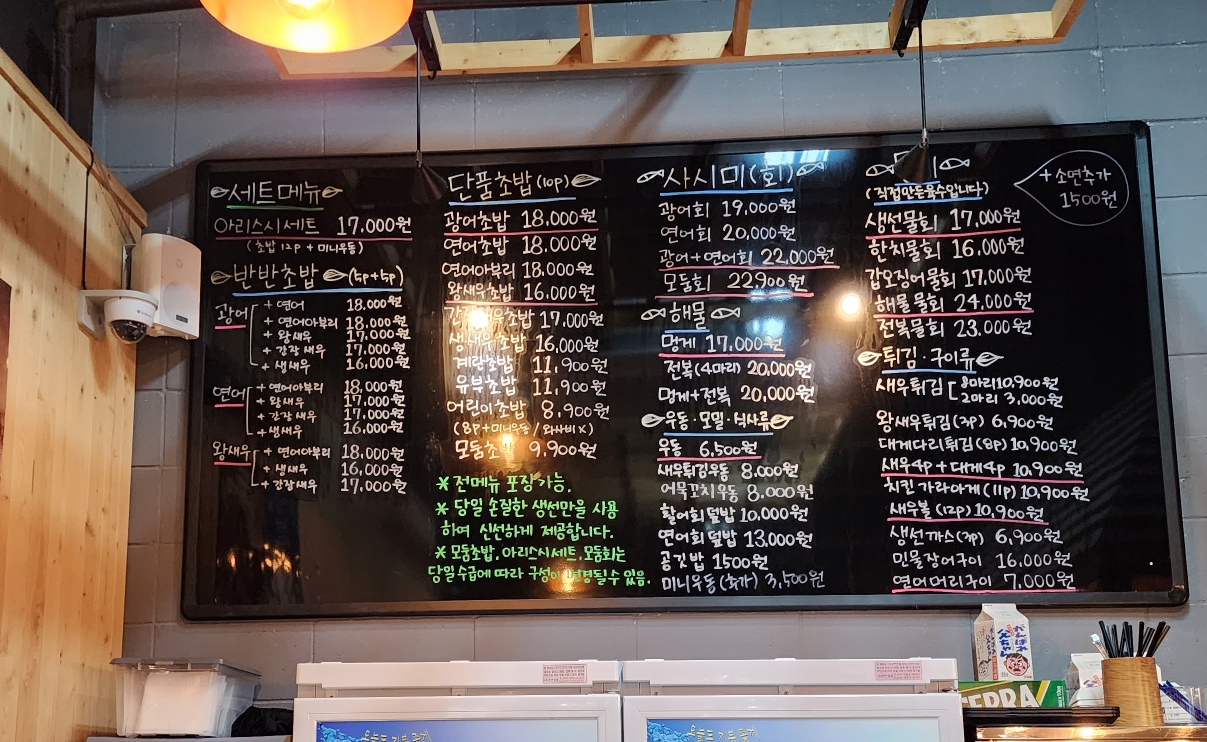 세트메뉴
아리스시세트 17,000원
(초밥 12p + 미니우동)
반반초밥 (5p+5p)
광어
+ 연어 18,000원
+ 연어아부리 18,000원
+ 왕새우 17,000원
+ 간장새우 17,000원
+ 생새우 16,000원
연어
+ 연어아부리 18,000원
+ 왕새우 17,000원
+ 간장새우 17,000원
+ 생새우 16,000원
왕새우
+ 연어아부리 18,000원
+ 생새우 16,000원
+ 간장새우 17,000원
단품초밥 (10p)
광어초밥 18,000원
연어초밥 18,000원
연어아부리 18,000원
왕새우초밥 16,000원
간장새우초밥 17,000원
생새우초밥 16,000원
계란초밥 11,900원
유부초밥 11,900원
어린이초밥 8,900원
(8P+미니우동 / 와사비 x)
모둠초밥 9,900원
* 전메뉴 포장가능.
* 당일 손질한 생선만을 사용
하여 신선하게 제공합니다.
* 모둠초밥, 아리스시세트, 모둠회는
당일수급에 따라 구성이 변경될수 있음.
사시미(회)
광어회 19,000원
연어회 20,000원
광어+연어회 22,000원
모둠회 22,900원
해물
멍게 17,000원
전복(4마리) 20,000원
멍게+전복 20,000원
우동·모밀·식사류
우동 6,500원
새우튀김우동 8,000원
어묵꼬치우동 8,000원
활어회덮밥 10,000원
연어회덮밥 13,000원
공깃밥 1500원
미니우동(추가) 3,500원
(직접만든육수입니다)
+소면추가
1500원
생선물회 17,000원
한치물회 16,000원
갑오징어물회 17,000원
해물물회 24,000원
전복물회 23,000원
튀김·구이류
새우튀김 8마리 10,900원
2마리 3,000원
왕새우튀김(3p) 6,900원
대게다리튀김(8p) 10,900원
새우4p+대게4p 10,900원
치킨 가라아게(11p) 10,900원
새우볼(12p) 10,900원
생선까스(3p) 6,900원
민물장어구이 16,000원
연어머리구이 7,000원
がんばれ
父ちゃん
TERRA